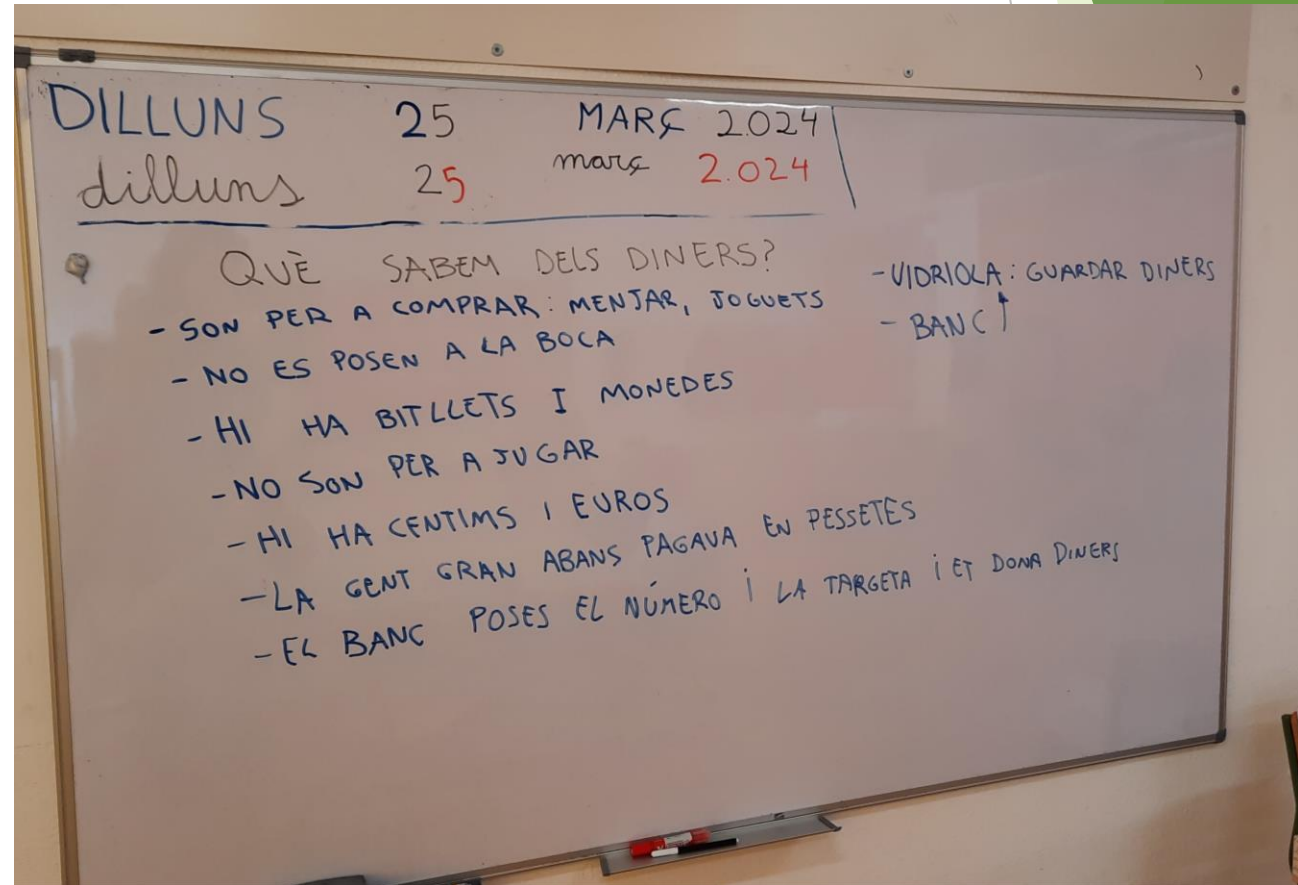 DILLUNS 25 MARÇ 2024
dilluns 25 març 2.024
QUÈ SABEM DELS DINERS?
- SON PER A COMPRAR: MENJAR, JOGUETS
- NO ES POSEN A LA BOCA
- HI HA BITLLETS I MONEDES
- NO SON PER A JUGAR
- HI HA CENTIMS I EUROS
- LA GENT GRAN ABANS PAGAVA EN PESSETES
- EL BANC POSES EL NÚMERO i LA TARGETA i ET DONA DINERS
- VIDRIOLA: GUARDAR DINERS
- BANC